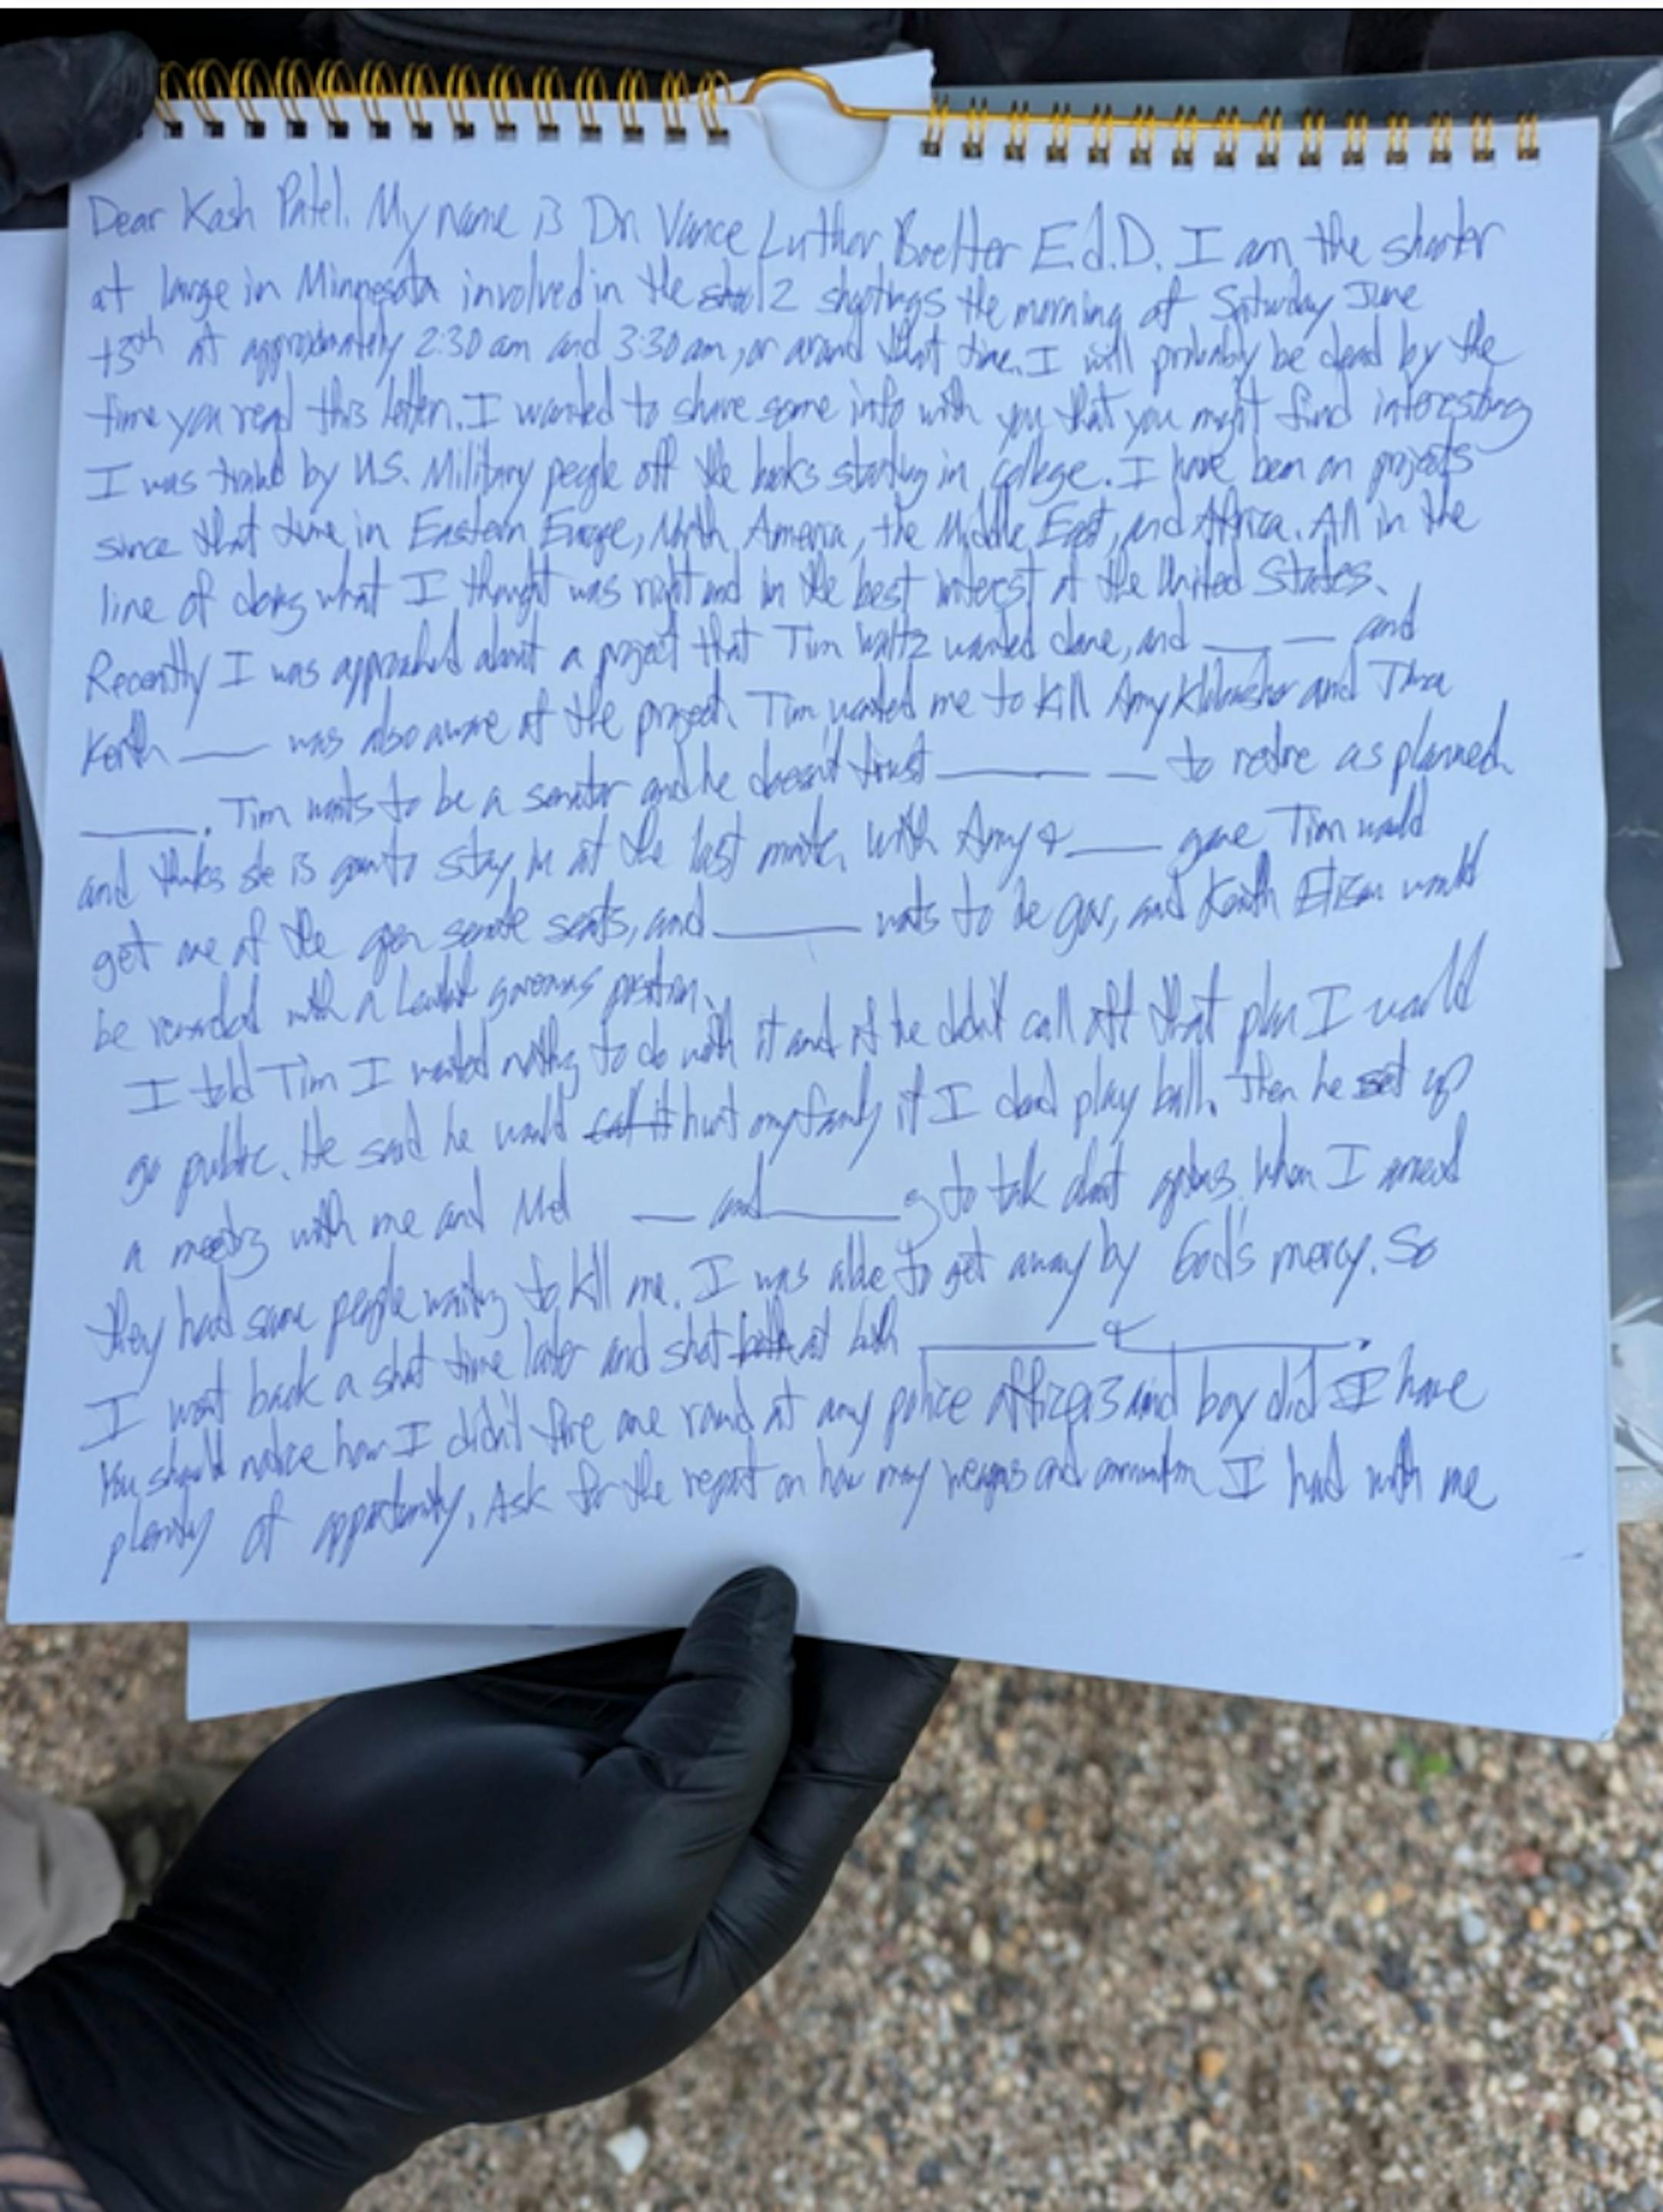 Dear Kash Patel. My name is Dr. Vance Luther Boelter Ed.D. I am the shooter
at large in Minnesota involved in the 2 shootings the morning of Saturday June
15th at approximately 2:30 am and 3:30 am, or around that time. I will probably be dead by the
time you read this letter. I wanted to share some info with you that you might find interesting
I was traind by U.S. Military people off the books starting in college. I have been on projects
since that time in Eastern Europe, North America, the Middle East, and Africa. All in the
line of doing what I thought was right and in the best interest of the United States.
Recently I was approached about a project that Tim Waltz wanted done, and ____ __ and
Keith ____ was also aware of the project. Tim wanted me to kill Amy Klobuchar and
____. Tim wants to be a senator and he doesn't trust ________ __ to retire as planned
and thinks she is gonto stay in at the last minute. With Amy & ____ gone Tim would
get one of the open senate seats, and ______ wants to be gov, and Keith would
be rewarded with a governors position.
I told Tim I wanted nothing to do with it and if he didn't call off that plan I would
go public. He said he would hurt my family if I didn't play ball. Then he set up
a meeting with me and ___ and ______ to talk about options. When I arrived
they had some people waiting to kill me. I was able to get away by God's mercy. So
I went back a short time later and shot at both ________ & ________.
You should notice how I didn't fire one round at any police officers and boy did I have
plenty of opportunity. Ask for the report on how many weapons and I had with me